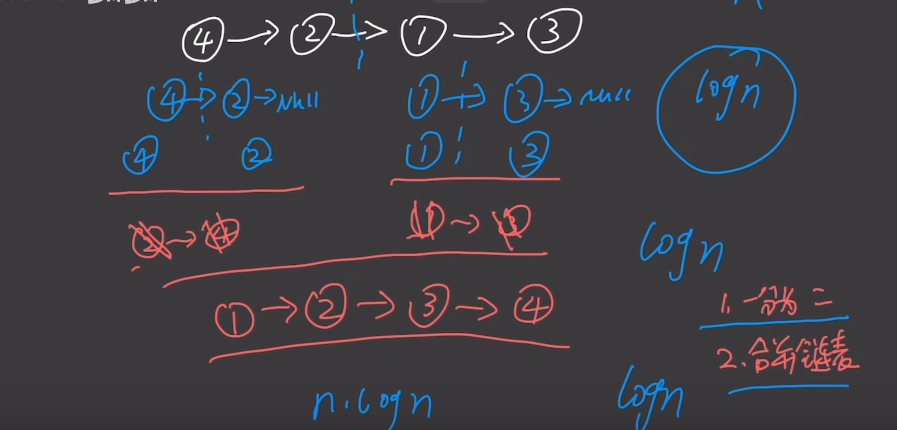 ④→②→①→③
④→②→Null ①→③→Null
④ ② ① ③
②→④ ①→③
①→②→③→④
n·logn
logn
logn
1.一分为二
2.合并链表
logn